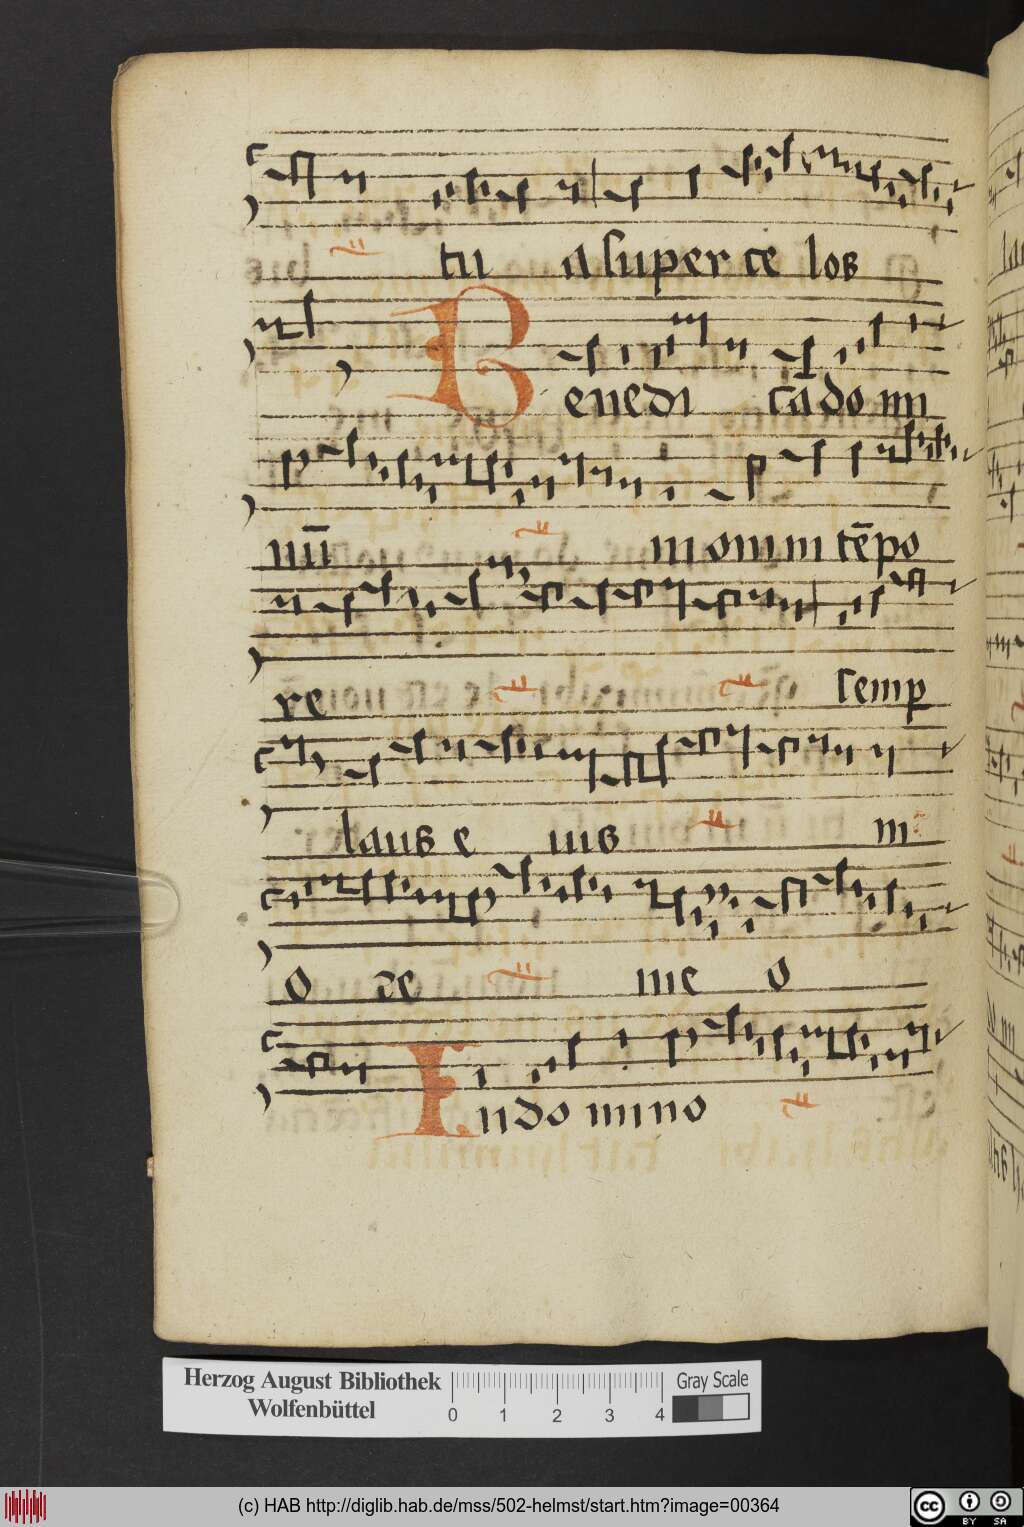 tu a super ce los
Benedi cā do mi
nū in omni tēpo
re semp
laus e ius in
o re me o
In do mino
Herzog August Bibliothek
Wolfenbüttel
0 1 2 3 4
Gray Scale
(c) HAB http://diglib.hab.de/mss/502-helmst/start.htm?image=00364
cc BY SA